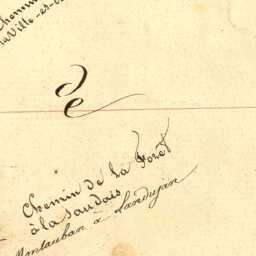 la Ville-es-
de
Chemin de la Foret
à la Saudais
Montauban à Landujan